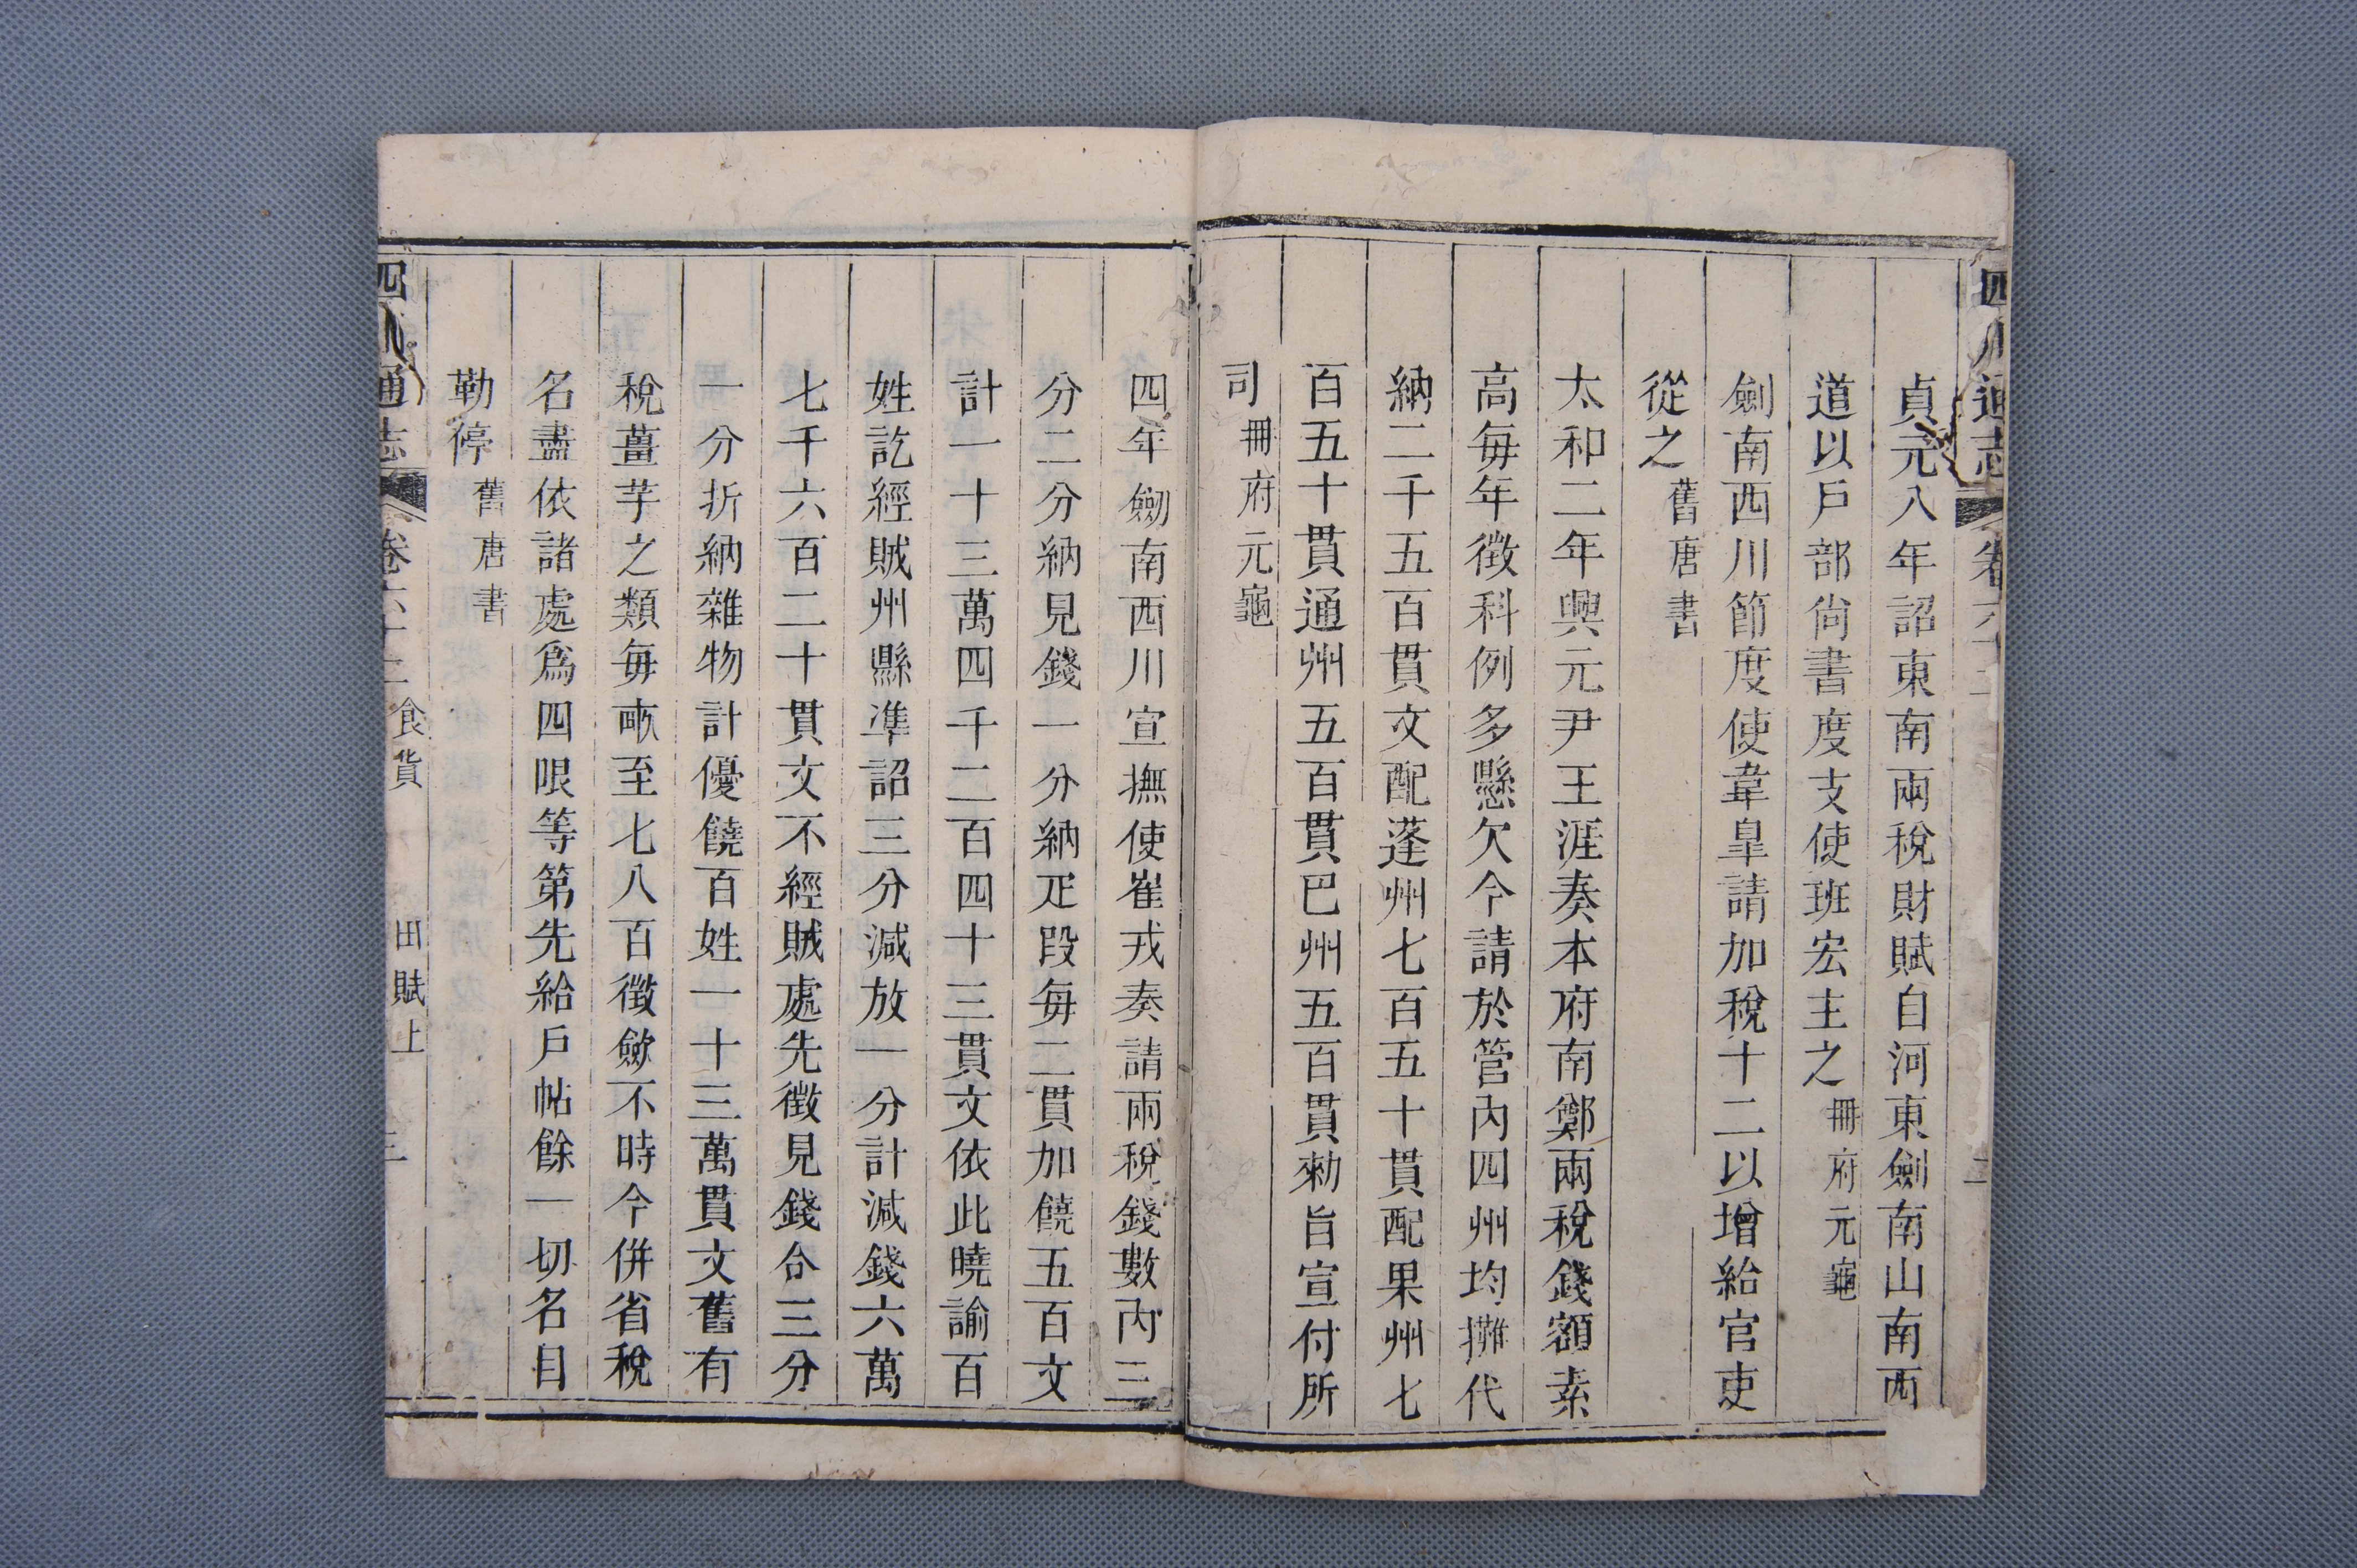 四川通志 卷六十二
貞元八年詔東南兩稅財賦自河東劍南山南西
道以戶部尙書度支使班宏主之冊府元龜
劍南西川節度使韋皐請加稅十二以增給官吏
從之舊唐書
太和二年興元尹王涯奏本府南鄭兩稅錢額素
高每年徵科例多懸欠今請於管內四州均攤代
納二千五百貫文配蓬州七百五十貫配果州七
百五十貫通州五百貫巴州五百貫勑旨宣付所
司冊府元龜
四年劒南西川宣撫使崔戎奏請兩稅錢數內三
分二分納見錢一分納疋段每二貫加饒五百文
計一十三萬四千二百四十三貫文依此曉諭百
姓訖經賊州縣準詔三分減放一分計減錢六萬
七千六百二十貫文不經賊處先徵見錢合三分
一分折納雜物計優饒百姓一十三萬貫文舊有
稅薑芋之類每畝至七八百徵斂不時今併省稅
名盡依諸處爲四限等第先給戶帖餘一切名目
勒停舊唐書
四川通志 卷六十二 食貨 田賦上 三